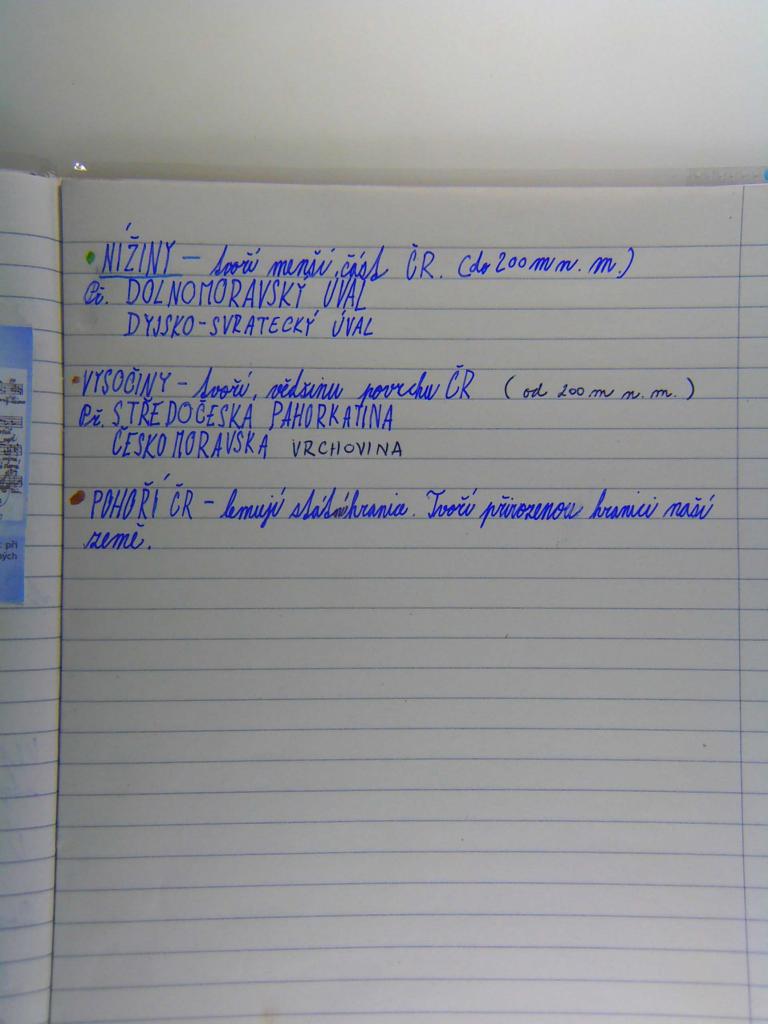 • NÍŽINY – tvoří menší část ČR. (do 200 m n. m.)
Př. DOLNOMORAVSKÝ ÚVAL
DYJSKO-SVRATECKÝ ÚVAL
• VYSOČINY – tvoří většinu povrchu ČR (od 200 m n. m.)
Př. STŘEDOČESKÁ PAHORKATINA
ČESKOMORAVSKÁ VRCHOVINA
• POHOŘÍ ČR – lemují státní hranice. Tvoří přirozenou hranici naší
země.
při
ných